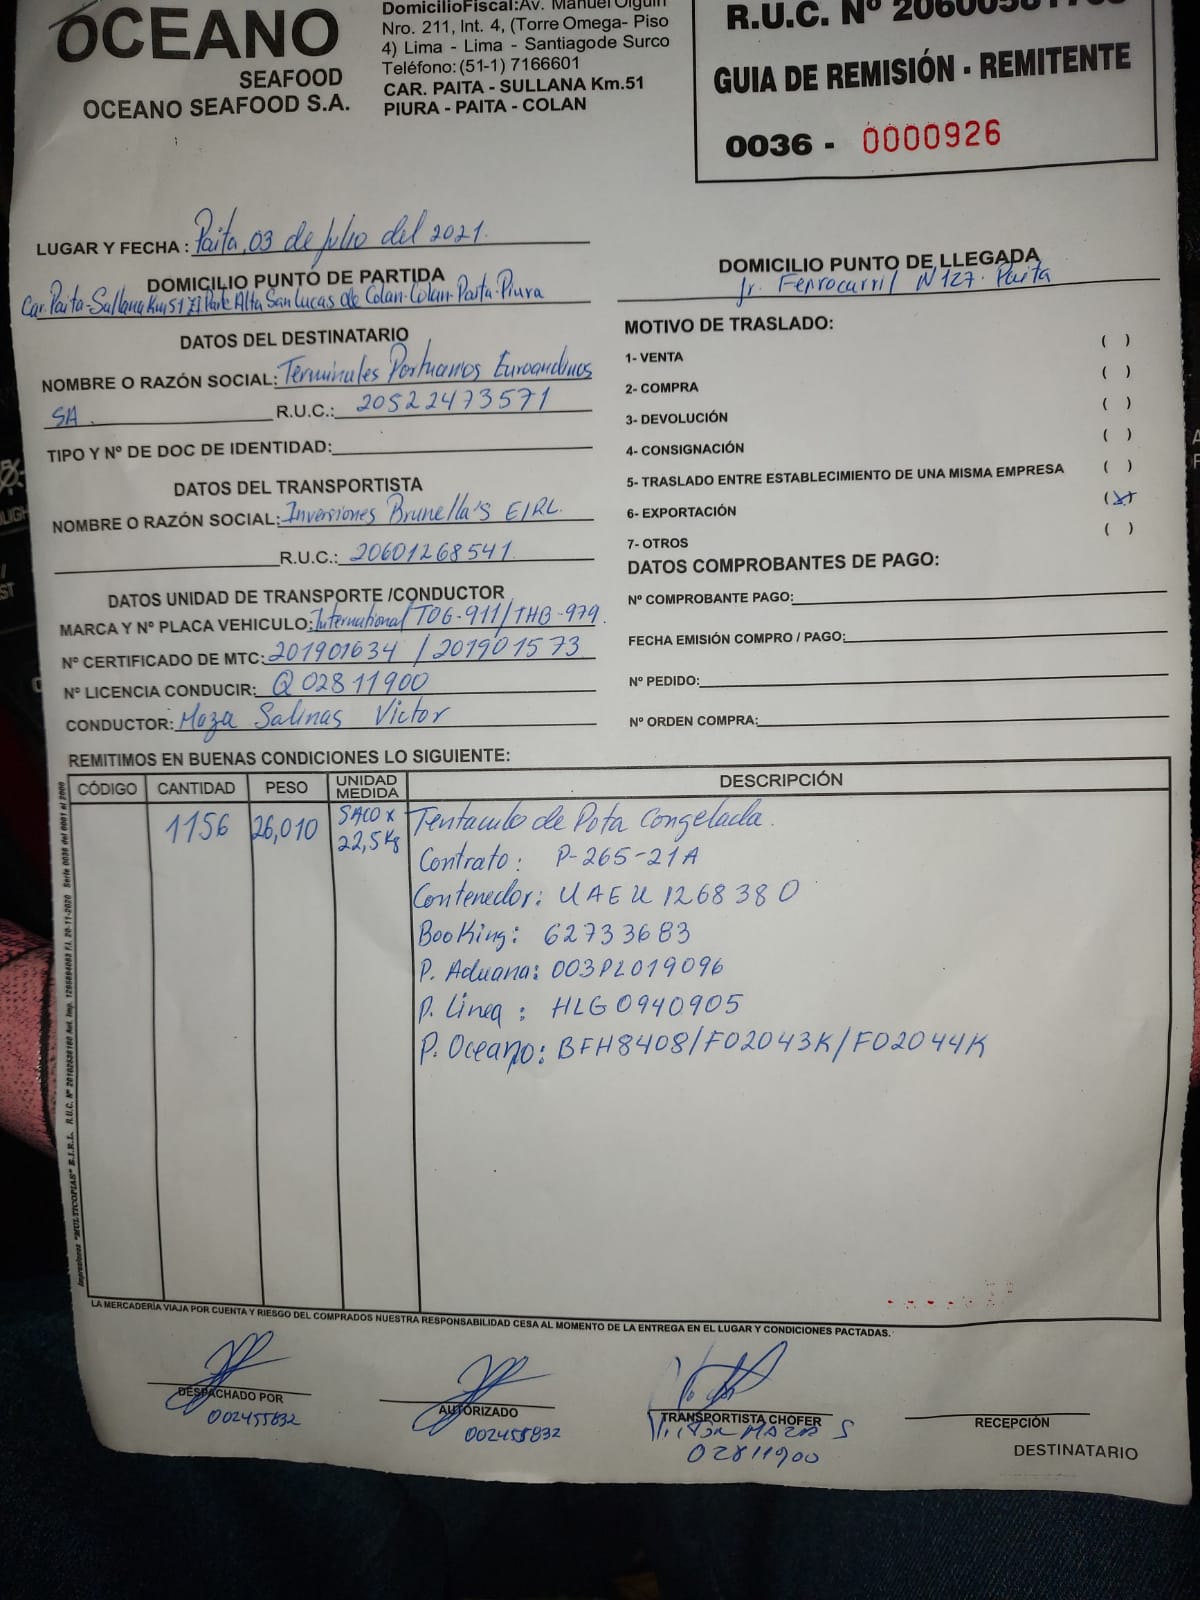 OCEANO
SEAFOOD
OCEANO SEAFOOD S.A.
DomicilioFiscal:Av. Manuel Olguin
Nro. 211, Int. 4, (Torre Omega- Piso
4) Lima - Lima - Santiagode Surco
Teléfono:(51-1) 7166601
CAR. PAITA - SULLANA Km.51
PIURA - PAITA - COLAN
R.U.C. Nº
GUIA DE REMISIÓN - REMITENTE
0036 - 0000926
LUGAR Y FECHA : Paita, 03 de Julio del 2021.
DOMICILIO PUNTO DE PARTIDA
Car. Paita-Sullana Km 51 ZI Parte Alta San Lucas de Colan-Colan-Paita-Piura
DOMICILIO PUNTO DE LLEGADA
Jr. Ferrocarril N 127. Paita
DATOS DEL DESTINATARIO
NOMBRE O RAZÓN SOCIAL: Terminales Portuarios Euroandinos
SA. R.U.C.: 20522473571
TIPO Y Nº DE DOC DE IDENTIDAD:
DATOS DEL TRANSPORTISTA
NOMBRE O RAZÓN SOCIAL: Inversiones Brunella's EIRL.
R.U.C.: 20601268541.
DATOS UNIDAD DE TRANSPORTE /CONDUCTOR
MARCA Y Nº PLACA VEHICULO: International TOG-911/THB-979.
Nº CERTIFICADO DE MTC: 201901634 / 201901573
Nº LICENCIA CONDUCIR: Q02811900
CONDUCTOR: Maza Salinas Victor
MOTIVO DE TRASLADO:
1- VENTA ( )
2- COMPRA ( )
3- DEVOLUCIÓN ( )
4- CONSIGNACIÓN ( )
5- TRASLADO ENTRE ESTABLECIMIENTO DE UNA MISMA EMPRESA ( )
6- EXPORTACIÓN (X)
7- OTROS ( )
DATOS COMPROBANTES DE PAGO:
Nº COMPROBANTE PAGO:
FECHA EMISIÓN COMPRO / PAGO:
Nº PEDIDO:
Nº ORDEN COMPRA:
REMITIMOS EN BUENAS CONDICIONES LO SIGUIENTE:
CÓDIGO CANTIDAD PESO UNIDAD MEDIDA DESCRIPCIÓN
1156 26,010 SACO x 22,5Kg Tentaculo de Pota Congelada.
Contrato: P-265-21A
Contenedor: UAEU 1268380
Booking: 62733683
P. Aduana: 003PL019096
P. Linea : HLG0940905
P. Oceano: BFH8408/F02043K/F02044K
Impresiones "MULTICOPIAS" E.I.R.L.
LA MERCADERÍA VIAJA POR CUENTA Y RIESGO DEL COMPRADOS NUESTRA RESPONSABILIDAD CESA AL MOMENTO DE LA ENTREGA EN EL LUGAR Y CONDICIONES PACTADAS.
DESPACHADO POR
002455832
AUTORIZADO
002455832
TRANSPORTISTA CHOFER
VICTOR MAZA S
02811900
RECEPCIÓN
DESTINATARIO